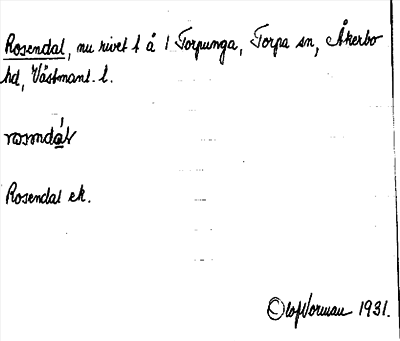 Rosendal, nu rivet t å 1 Torpunga, Torpa sn, Åkerbo
hd, Västmanl. l.
Rosendal ek.
Olof Norman 1931.